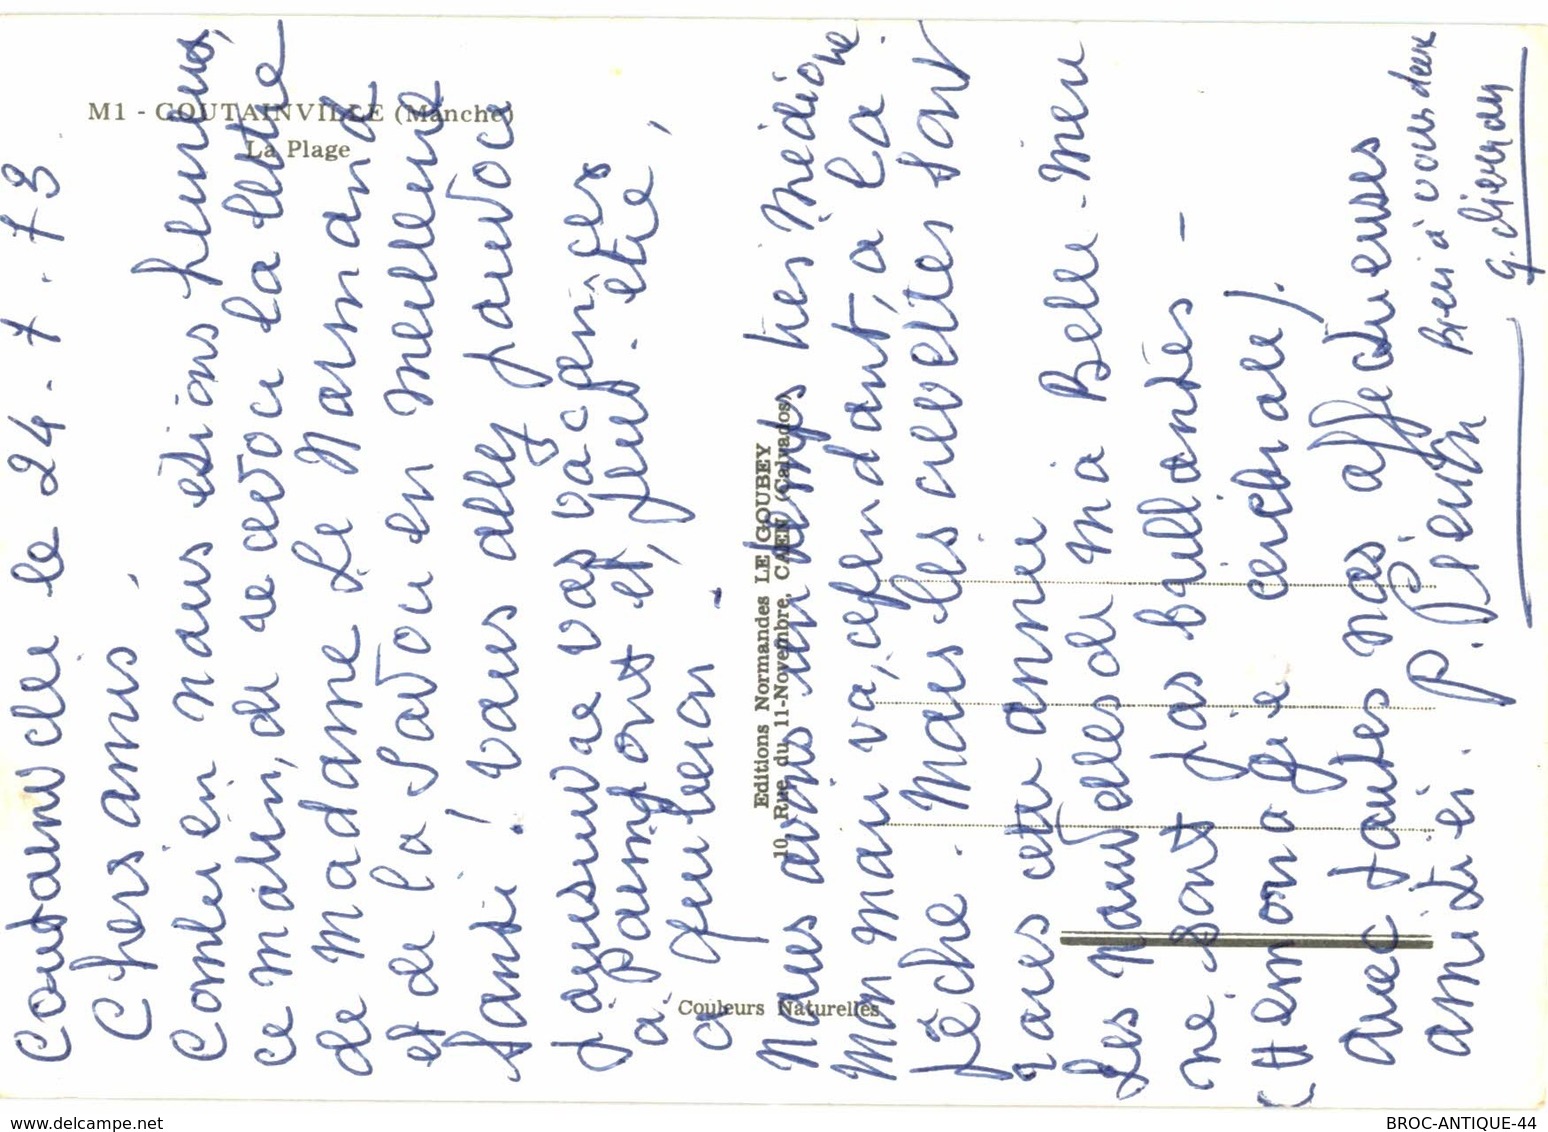 M1 - COUTAINVILLE (Manche)
La Plage
Editions Normandes LE GOUBEY
10, Rue du 11-Novembre, CAEN (Calvados)
Couleurs Naturelles
le 24.7.73
Chers amis,
Combien nous étions heureux,
ce matin, de recevoir la lettre
de Madame Le Normand
et de la Savoir en meilleure
Santé ! Vous allez pouvoir
poursuivre vos vacances
à et, peut-être,
à
Nous avons un temps très médiocre
Mon mari va, cependant, à la
pêche. Mais les crevettes sont
rares cette année
Les nouvelles de ma Belle-Mère
ne sont pas brillantes -
(Hémorragie cérébrale).
Avec toutes nos affectueuses
amitiés.
Bien à vous deux
BROC-ANTIQUE-44
delcampe.net